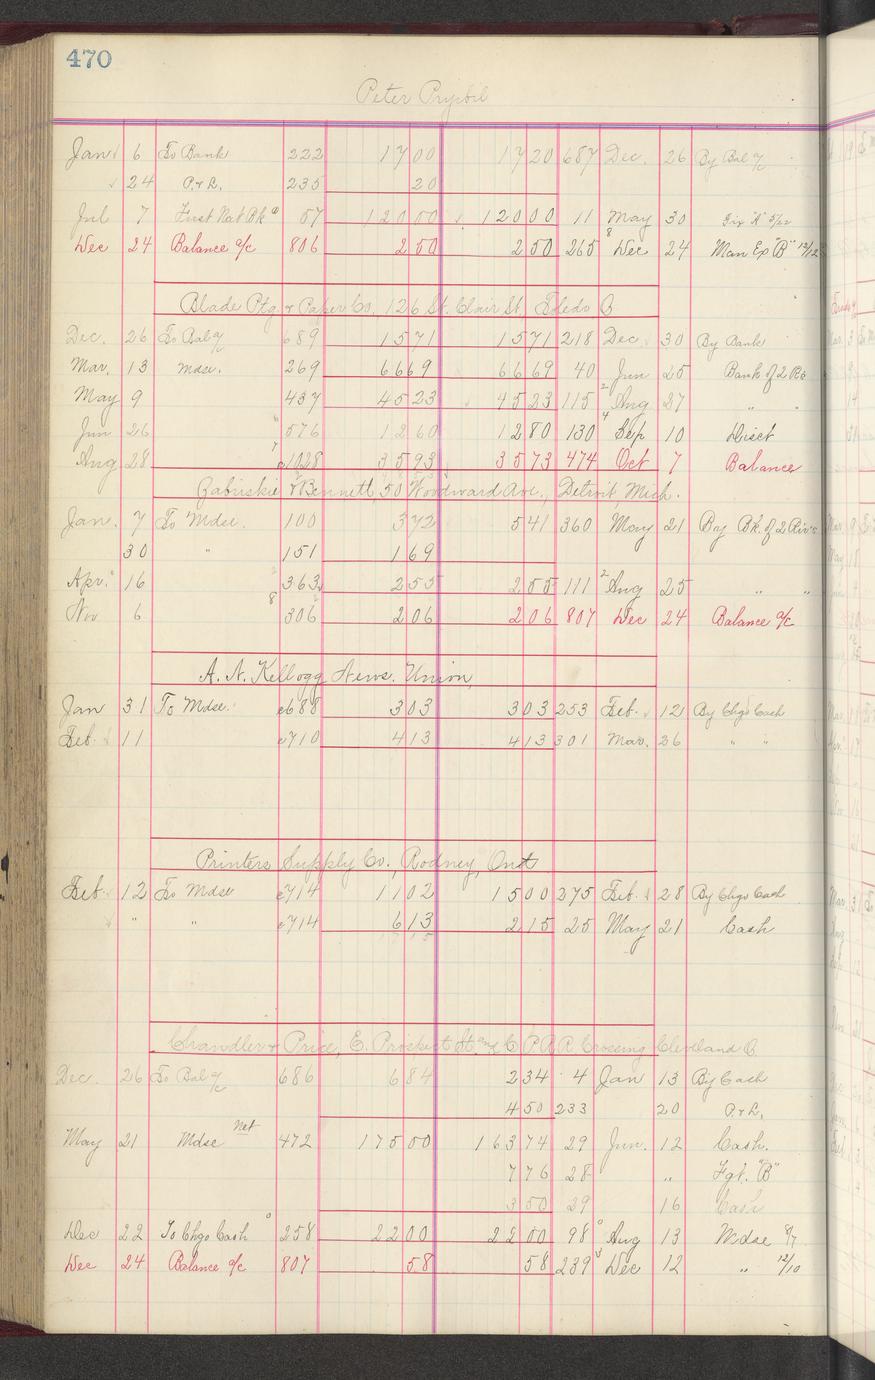 470
Peter Prybil
Jan 6 To Bank 222 17 00 17 20 687 Dec. 26 By Bal a/c
24 P. & L. 235 20
Jul 7 First Nat Bk 57 120 00 120 00 11 May 30 Fix "A" 5/22
Dec 24 Balance a/c 806 2 50 2 50 265 8 Dec 24 Man Ex "B" 12/12
Blade Ptg. & Paper Co. 126 St. Clair St. Toledo O
Dec. 26 To Bal a/c 689 15 71 15 71 218 Dec 30 By Bank
Mar. 13 Mdse. 269 66 69 66 69 40 Jun 25 Bank of 2 Rs
May 9 437 45 23 45 23 115 2 Aug 27 " "
Jun 26 576 12 60 12 80 130 4 Sep 10 Disct
Aug 28 7 1028 35 93 35 73 474 Oct 7 Balance
Zabriskie & Bennett, 50 Woodward Ave., Detroit, Mich.
Jan. 7 To Mdse. 100 3 72 5 41 360 May 21 By Bk. of 2 Riv's
30 " 151 1 69
Apr. 16 363 2 55 2 55 111 2 Aug 25 " "
Nov 6 8 306 2 06 2 06 807 Dec 24 Balance a/c
A. N. Kellogg News. Union,
Jan 31 To Mdse. c688 3 03 3 03 253 Feb. 12 By Chgo Cash
Feb. 11 c710 4 13 4 13 301 Mar. 26 " "
Printers Supply Co., Rodney, Ont
Feb. 12 To Mdse c714 11 02 15 00 275 Feb. 28 By Chgo Cash
" " c714 6 13 2 15 25 May 21 Cash
Chandler & Price, E. Prospect St. and C P R R Crossing Cleveland O.
Dec. 26 To Bal a/c 686 6 84 2 34 4 Jan 13 By Cash
4 50 233 20 P. & L.
May 21 Mdse Net 472 175 00 163 74 29 Jun. 12 Cash.
7 76 28 " Fgt. "B"
3 50 29 16 Cash
Dec 22 To Chgo Cash 258 22 00 22 00 98 Aug 13 Mdse 8/7
Dec 24 Balance a/c 807 58 58 239 3 Dec 12 " 12/10